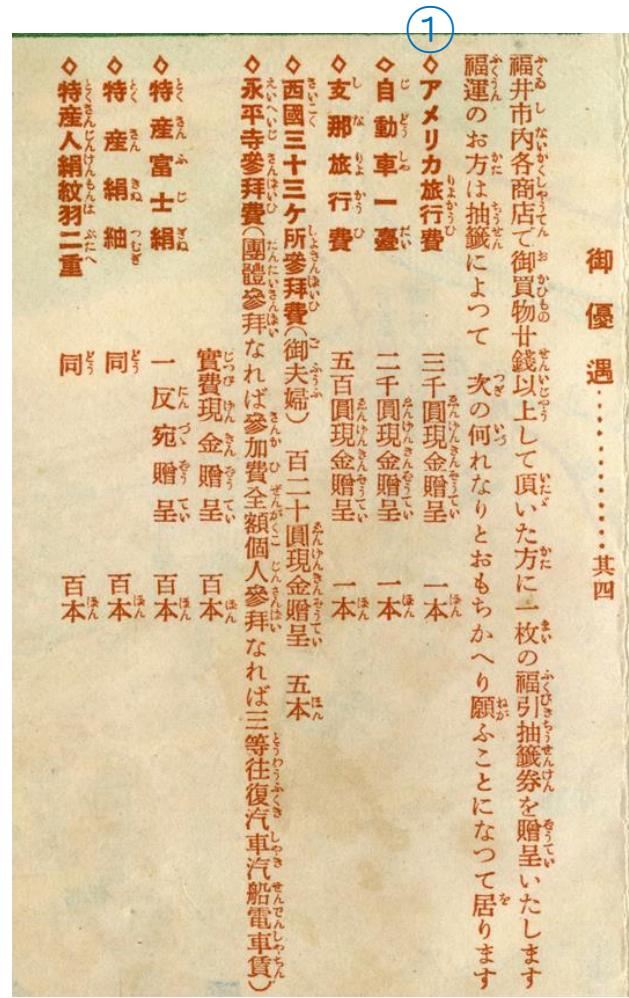 ①
御優遇・・・・・・・・・・・其四
福井市内各商店で御買物廿錢以上して頂いた方に一枚の福引抽籤券を贈呈いたします
福運のお方は抽籤によつて 次の何れなりとおもちかへり願ふことになつて居ります
◇アメリカ旅行費 三千圓現金贈呈 一本
◇自動車一臺 二千圓現金贈呈 一本
◇支那旅行費 五百圓現金贈呈 一本
◇西國三十三ケ所參拜費(御夫婦) 百二十圓現金贈呈 五本
◇永平寺參拜費(團體參拜なれば參加費全額個人參拜なれば三等往復汽車汽船電車賃)
實費現金贈呈 百本
◇特產富士絹 一反宛贈呈 百本
◇特產絹紬 同 百本
◇特產人絹紋羽二重 同 百本